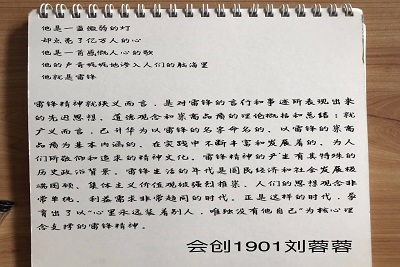 他是一盏微弱的灯
却点亮了亿万人的心
他是一首感慨人心的歌
他的声音娓娓地渗入人们的脑海里
他就是雷锋
雷锋精神就狭义而言，是对雷锋的言行和事迹所表现出来
的先进思想、道德观念和崇高品质的理论概括和总结；就
广义而言，已升华为以雷锋的名字命名的、以雷锋的崇高
品质为基本内涵的、在实践中不断丰富和发展着的、为人
们所敬仰和追求的精神文化。雷锋精神的产生有其特殊的
历史政治背景。雷锋生活的年代是国民经济和社会发展极
端困顿、集体主义价值观被强烈推崇、人们的思想观念非
常单纯、利益需求非常趋同的时代。正是这样的时代，孕
育出了以“心里永远装着别人，唯独没有他自己”为核心理
念支撑的雷锋精神。
会创1901刘蓉蓉